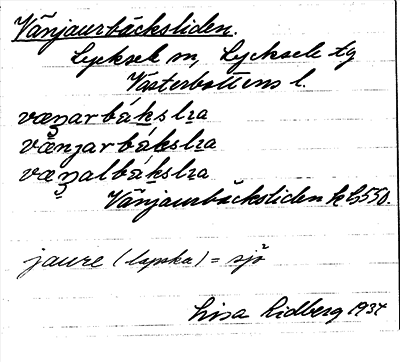 Vänjaurbäcksliden.
Lycksele sn, Lycksele tg
Västerbottens l.
væn̥arbáksli̥a
vänjarbáksli̥a
væn̥albáksli̥a
Vänjaurbäcksliden kb550
jaure (lapska) = sjö
Lisa Lidberg 1937